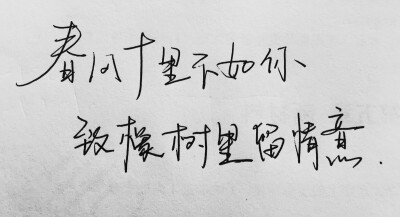 春风十里不如你
致橡树里留情意.